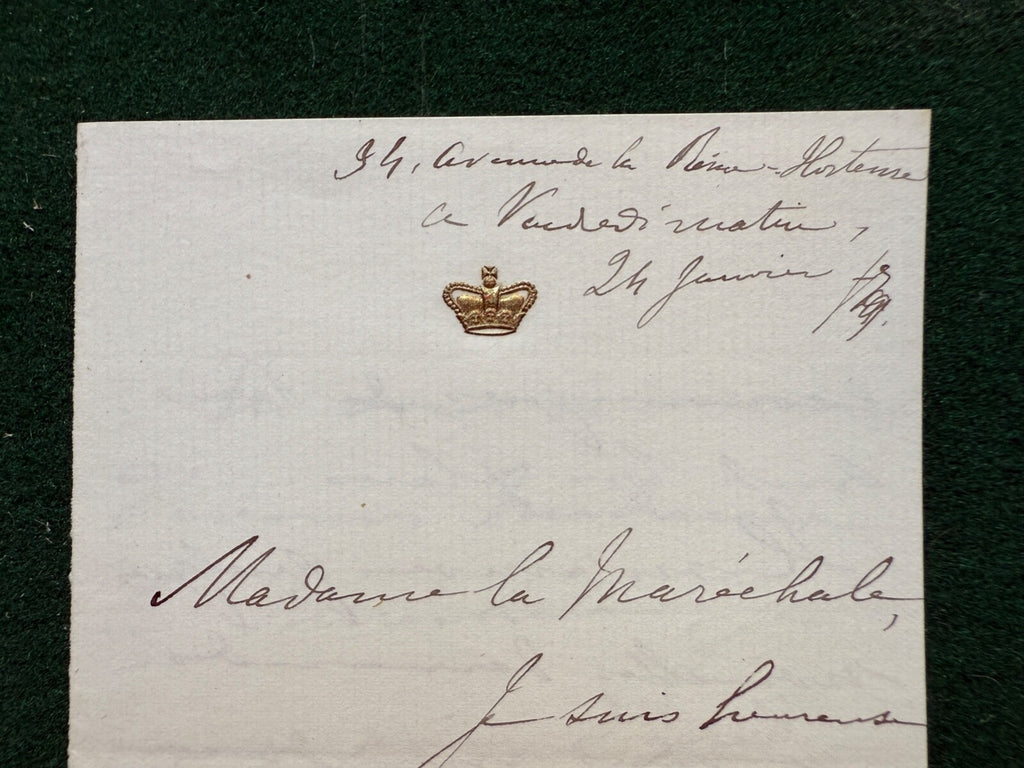 34, Avenue de la Reine-Hortense
ce Vendredi matin,
24 Janvier
Madame la Maréchale,
Je suis heureuse